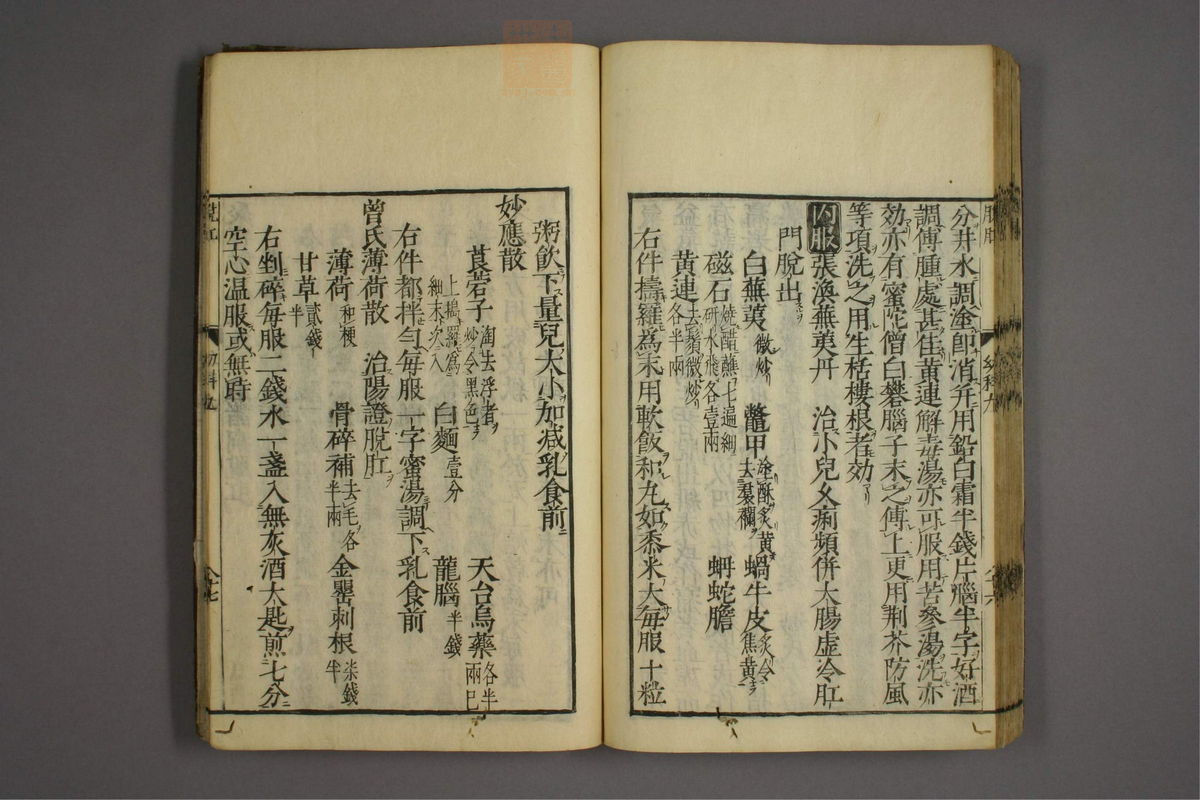 分井水調塗即消并用鉛白霜半錢片腦半字好酒
調傅腫處甚佳黄連解毒湯亦可服用苦參湯洗亦
効亦有蜜佗僧白礬腦子末之傅上更用荆芥防風
等項洗之用生栝樓根者効
内服 張渙蕪荑丹 治小兒久痢頻併大腸虚冷肛
門脱出
白蕪荑微炒 鼈甲塗酥炙黄去裙襴 蝸牛皮炙令焦黄
磁石燒醋蘸七遍細研水飛各壹兩 蚺蛇膽
黄連去鬚微炒各半兩
右件擣羅爲末用軟飯和丸如黍米大毎服十粒
粥飲下量兒大小加减乳食前
妙應散
莨菪子淘去浮者炒令黒色 天台烏藥各半兩已
上擣羅爲細末次入 白麵壹分 龍腦半錢
右件都拌勻毎服一字蜜湯調下乳食前
曾氏薄荷散 治陽證脱肛
薄荷和梗 骨碎補去毛各半兩 金罌刺根柒錢半
甘草貳錢半
右剉碎毎服二錢水一盞入無灰酒大匙煎七分
空心温服或無時
脱肛
幼科九